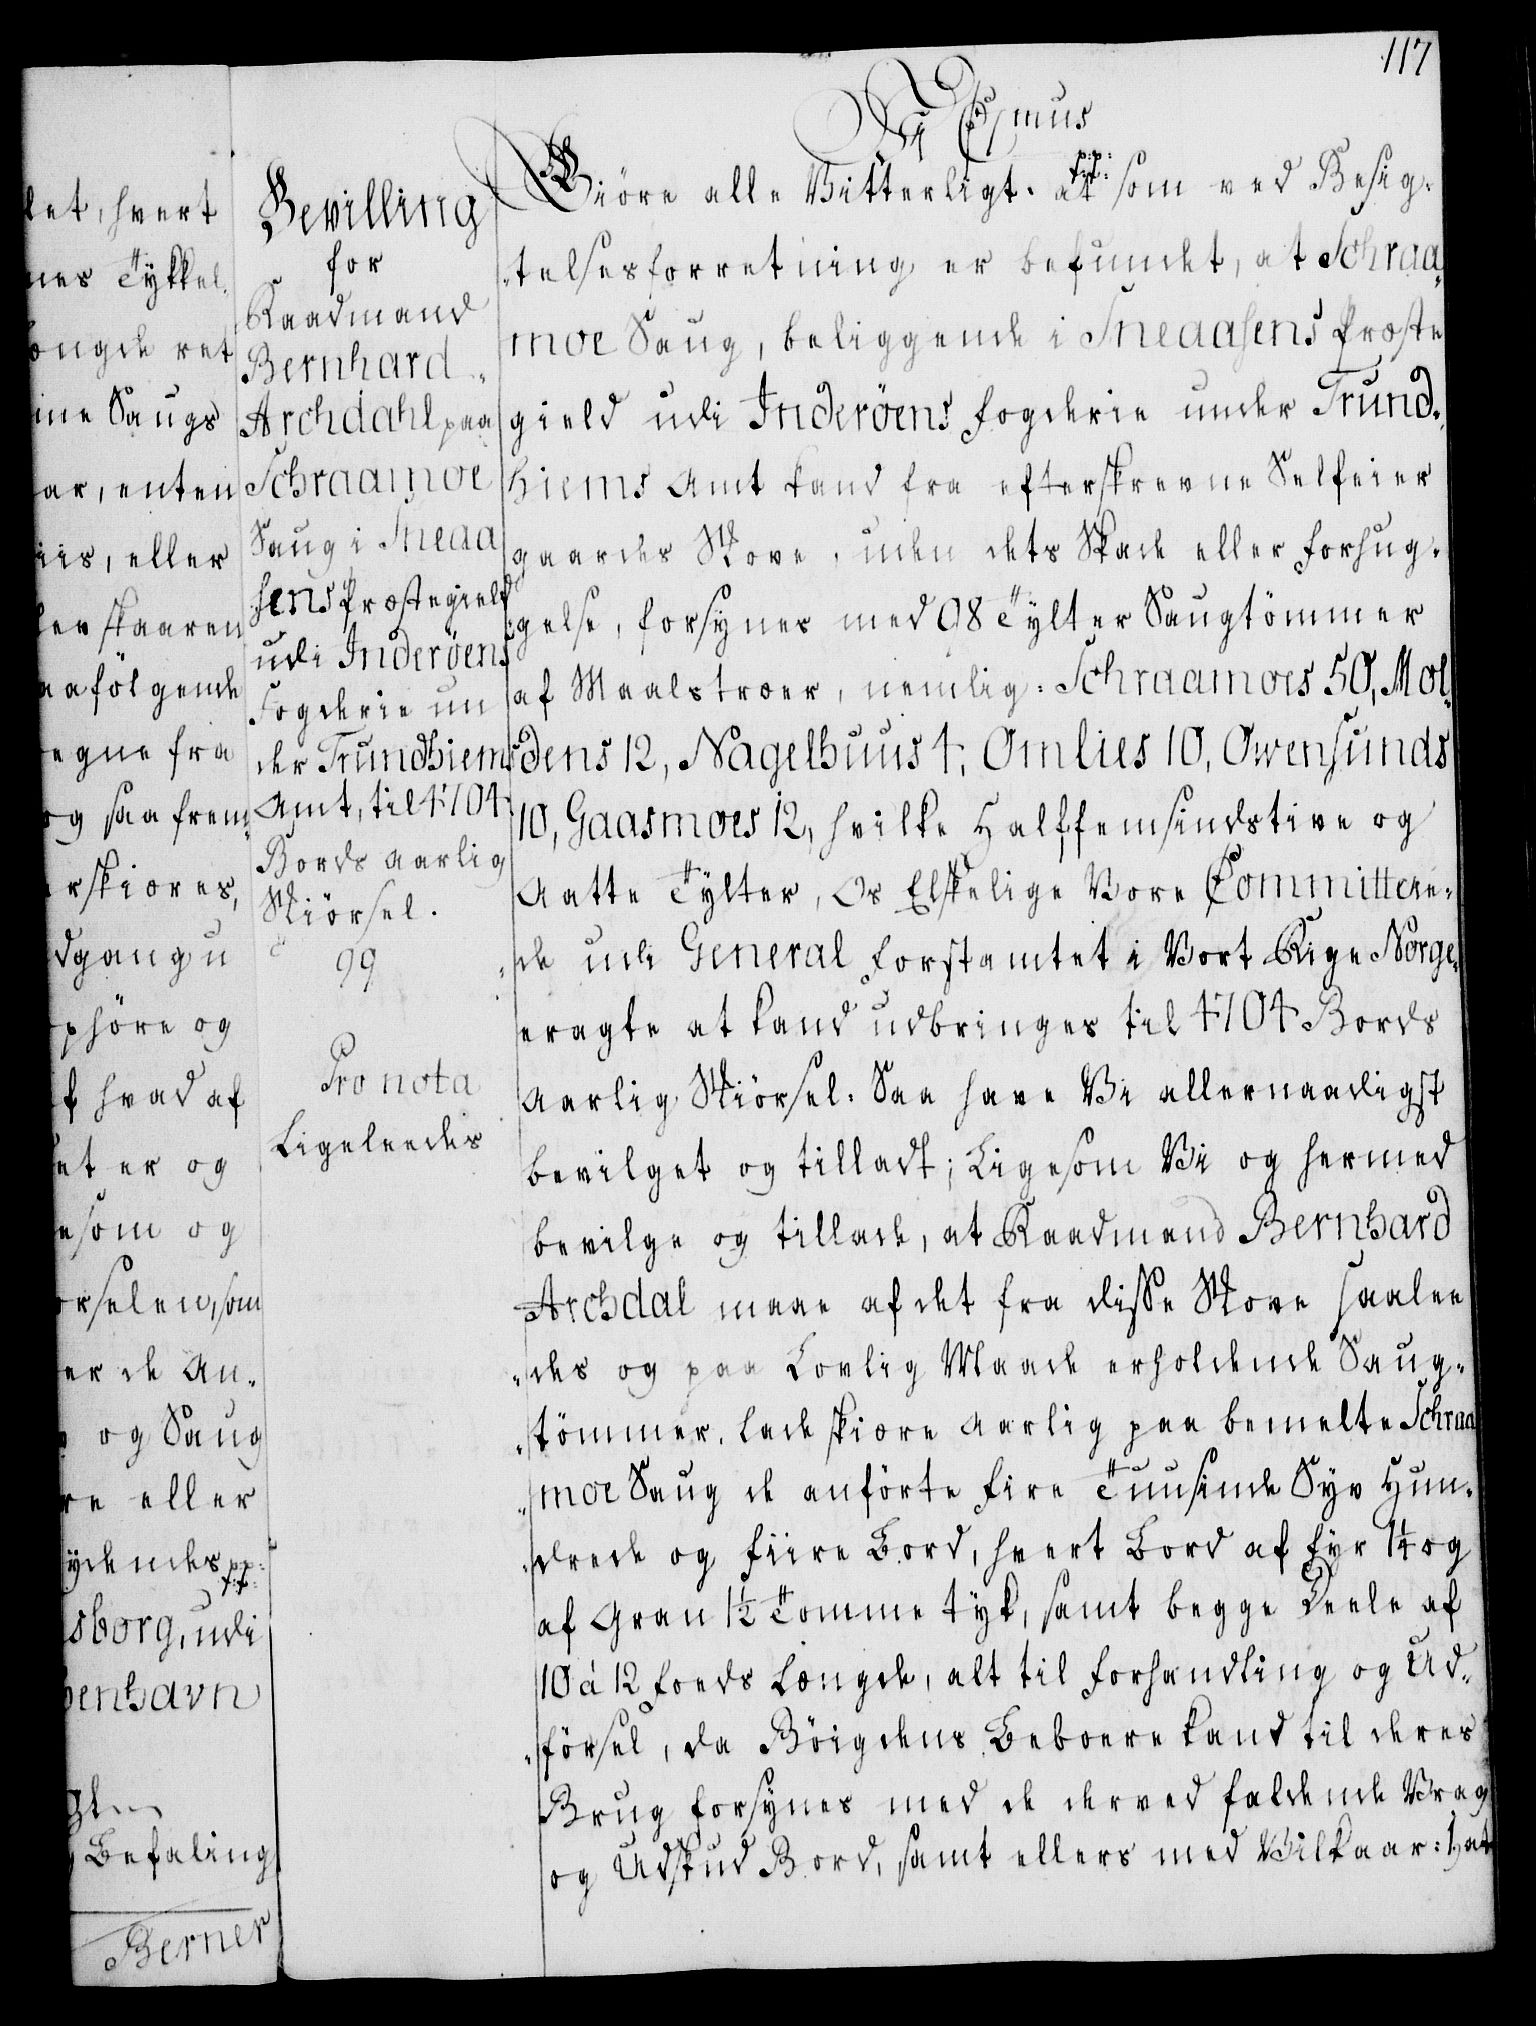 117
let, hvert
nes Tÿkkel-
længde ret
ine Saugs
ar, enten
iis, eller
skaaren
aafölgende
egne fra
og saa frem
rskiæres,
dgang u
phöre og
f hvad af
et er og
esom og
orselen, som
er de An-
og Saug
re eller
ydendes p:p: t:t:
sborg, udi
benhavn
Befaling
Berner
Bevilling
for
Raadmand
Bernhard
Archdahl paa
Schraamoe
Saug i Sneaa
sens Præstegield
udi Inderöens
Fogderie un
der Trundhiems
Amt, til 4704
Bords aarlig
Skiörsel.
99
Pro nota
Ligeleedes
Vi Chmus
Giöre alle Vitterligt. p:p: t:t: at som ved Besig-
telsesforretning er befundet, at Schraa-
moe Saug, beliggende i Sneaasens Præste
gield udi Inderöens Fogderie under Trund-
hiems Amt kand fra efterskrevne Selfeier
gaardes Skove, uden dets Skade eller Forhug-
gelse, forsynes med 98 Tylter Saugtömmer
af Maalstræer, nemlig: Schraamoes 50, Mol-
dens 12, Nagelhuus 4, Omlies 10, Owensunds
10, Gaasmoes 12, hvilke Halffemsindstive og
Aatte Tylter, Os Elskelige Vore Committere-
de udi General Forstamtet i Vort Rige Norge,
eragte at kand udbringes til 4704 Bords
Aarlig Skiörsel. Saa have Vi allernaadigst
bevilget og tilladt; Ligesom Vi og hermed
bevilge og tillade, at Raadmand Bernhard
Archdal maae af det fra disse Skove saalee
des og paa Lovlig Maade erholdende Saug-
tömmer, lade skiære Aarlig paa bemelte Schraa
moe Saug de anförte Fire Tuusinde Syv Hun-
drede og fiire Bord, hvert Bord af Fyr 1¼ og
af Gran 1½ Tomme tÿk, samt begge Deele af
10 á 12 Foeds Længde, alt til Forhandling og Ud-
försel, da Böigdens Beboere kand til deres
Brug forsynes med de derved faldende Vrag
og Udskud Bord, samt ellers med Vilkaar: 1) at